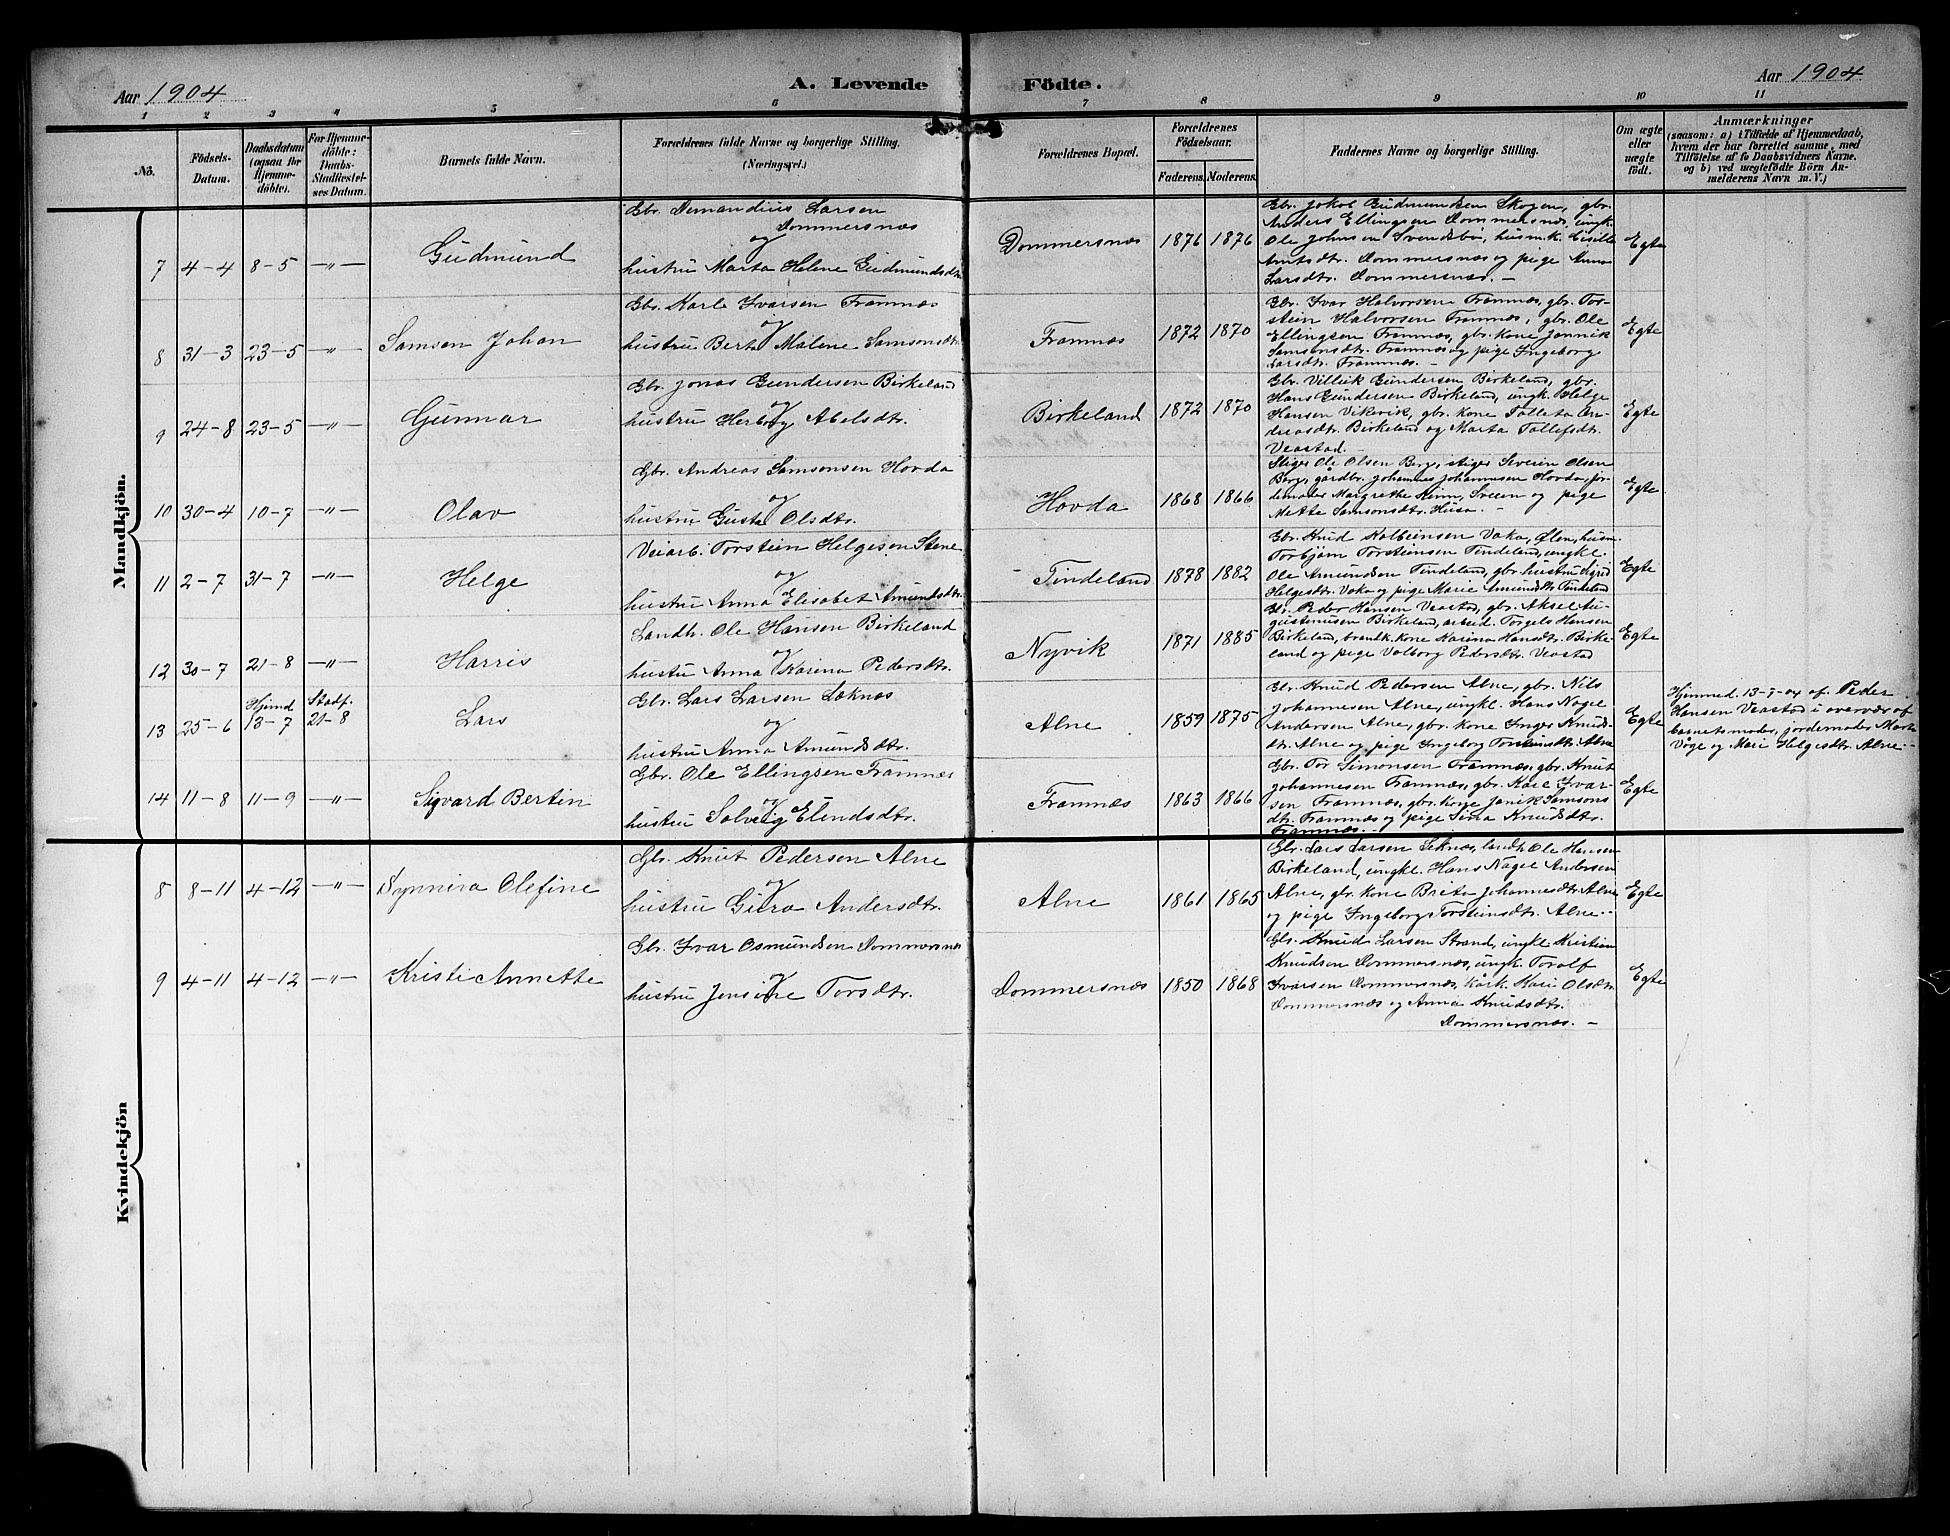 Aar 1904
A. Levende Födte.
Aar 1904
1 2 3 4 5 6 7 8 9 10 11
No.
Födsels-
Datum.
Daabsdatum
(ogsaa for
Hjemme-
döbte).
For Hjemme-
döbte:
Daabs-
Stadfæstel-
ses Datum.
Barnets fulde Navn.
Forældrenes fulde Navne og borgerlige Stilling.
(Næringsvei.)
Forældrenes Bopæl.
Forældrenes
Födselsaar.
Faderens. Moderens.
Faddernes Navne og borgerlige Stilling.
Om ægte
eller
uægte
födt.
Anmærkninger
(saasom: a) i Tilfælde af Hjemmedaab,
hvem der har forrettet samme, med
Tilföielse af to Daabsvidners Navne,
og b) ved uægtefödte Börn An-
melderens Navn m. V.)
Mandkjön.
7 4-4 8-5 —"— Gudmund
Gbr. Demandius Larsen
Dommersnæs
og
hustru Marta Helene Gudmundsdtr.
Dommersnæs 1876 1876
Gbr. Jakob Gudmundsen Skogen, gbr.
Anders Ellingsen Dommersnæs, ungk.
Ole Johnsen Svendsbø, husm.k. Sisilie
Amtsdtr. Dommersnæs og pige Anna
Larsdtr. Dommersnæs. —
Egte
8 31-3 23-5 —"— Samson Johan
Gbr. Karle Ivarsen Framnæs
og
hustru Berta Malene Samsonsdtr.
Framnæs 1872 1870
Gbr. Ivar Halvorsen Framnæs, gbr. Tor-
stein Halvorsen Framnæs, gbr. Ole
Ellingsen Framnæs, gbr. kone Jannik
Samsonsdtr. Framnæs og pige Ingeborg
Larsdtr. Framnæs. —
Egte
9 24-8 23-5 —"— Gunnar
Gbr. Jonas Gundersen Birkeland
og
hustru Herborg Abelsdtr.
Birkeland 1872 1870
Gbr. Villik Gundersen Birkeland, gbr.
Hans Gundersen Birkeland, ungk. Helge
Hansen Vikevik, gbr. kone Tolleta An-
dreasdtr. Birkeland og Marta Tollefsdtr.
Veastad. —
Egte
10 30-4 10-7 —"— Olav
Gbr. Andreas Samsonsen Hovda
og
hustru Gusta Olsdtr.
Hovda 1868 1866
Stiger Ole Olsen Berg, stiger Severin Olsen
Berg, gårdbr. Johannes Johannesen Hovda, jor-
demoder Margrethe Heim, Sveen og pige
Mette Samsonsdtr. Husa. —
Egte
11 2-7 31-7 —"— Helge
Veiarb. Torstein Helgesen Stene
og
hustru Anna Elisabet Amundsdtr.
Tindeland 1878 1882
Gbr. Knud Kolbeinsen Vaka, Ølen, husm.
Torbjørn Torsteinsen Tindeland, ungk.
Ole Amundsen Tindeland, gbr. hustru Sigrid
Helgesdtr. Vaka og pige Marie Amundsdtr. Tindeland
Egte
12 30-7 21-8 —"— Harris
Landh. Ole Hansen Birkeland
og
hustru Anna Karina Pedersdtr.
Nyvik 1871 1885
Gbr. Peder Hansen Veastad, gbr. Aksel Au-
gustinusen Birkeland, arbeid. Torgels Hansen
Birkeland, kone Karina Hansdtr. Birke-
land og pige Valborg Pedersdtr. Veastad
Egte
13 25-6 Hjemd 13-7 Stadf. 21-8 Lars
Gbr. Lars Larsen Leknæs
og
hustru Anna Amundsdtr.
Alne 1859 1875
Gbr. Knud Pedersen Alne, gbr. Nils
Johannesen Alne, ungk. Hans Nagel
Andersen Alne, gbr. kone Inger Knuds-
dtr. Alne og pige Ingeborg Torsteinsdtr. Alne
Egte
Hjemmed. 13-7-04 af Peder
Hansen Veastad i overvær af
barnets moder, jordemoder Marta
Våge og Mari Helgesdtr. Alne. —
14 11-8 11-9 —"— Sigvard Bertin
Gbr. Ole Ellingsen Framnæs
og
hustru Solveig Elendsdtr.
Framnæs 1863 1866
Gbr. Tor Simonsen Framnæs, gbr. Knut
Johannesen Framnæs, gbr. Kare Ivar-
sen Framnæs, gbr. kone Janik Samsons
dtr. Framnæs og pige Sina Knudsdtr.
Framnæs. —
Egte
Kvindekjön
8 8-11 4-12 —"— Synnira Olefine
Gbr. Knut Pedersen Alne
og
hustru Guro Andersdtr.
Alne 1861 1865
Gbr. Lars Larsen Leknæs, landh. Ole Hansen
Birkeland, ungk. Hans Nagel Andersen
Alne, gbr. kone Brita Johannesdtr. Alne
og pige Ingeborg Torsteinsdtr. Alne. —
Egte
9 4-11 4-12 —"— Kristi Annette
Gbr. Ivar Osmundsen Dommersnæs
og
hustru Jensine Torsdtr.
Dommersnæs 1850 1868
Gbr. Knud Larsen Strand, ungk. Kristian
Knudsen Dommersnæs, ungk. Toralf
Ivarsen Dommersnæs, kårk. Kari Olsdtr.
Dommersnæs og Anna Knudsdtr.
Dommersnæs. —
Egte